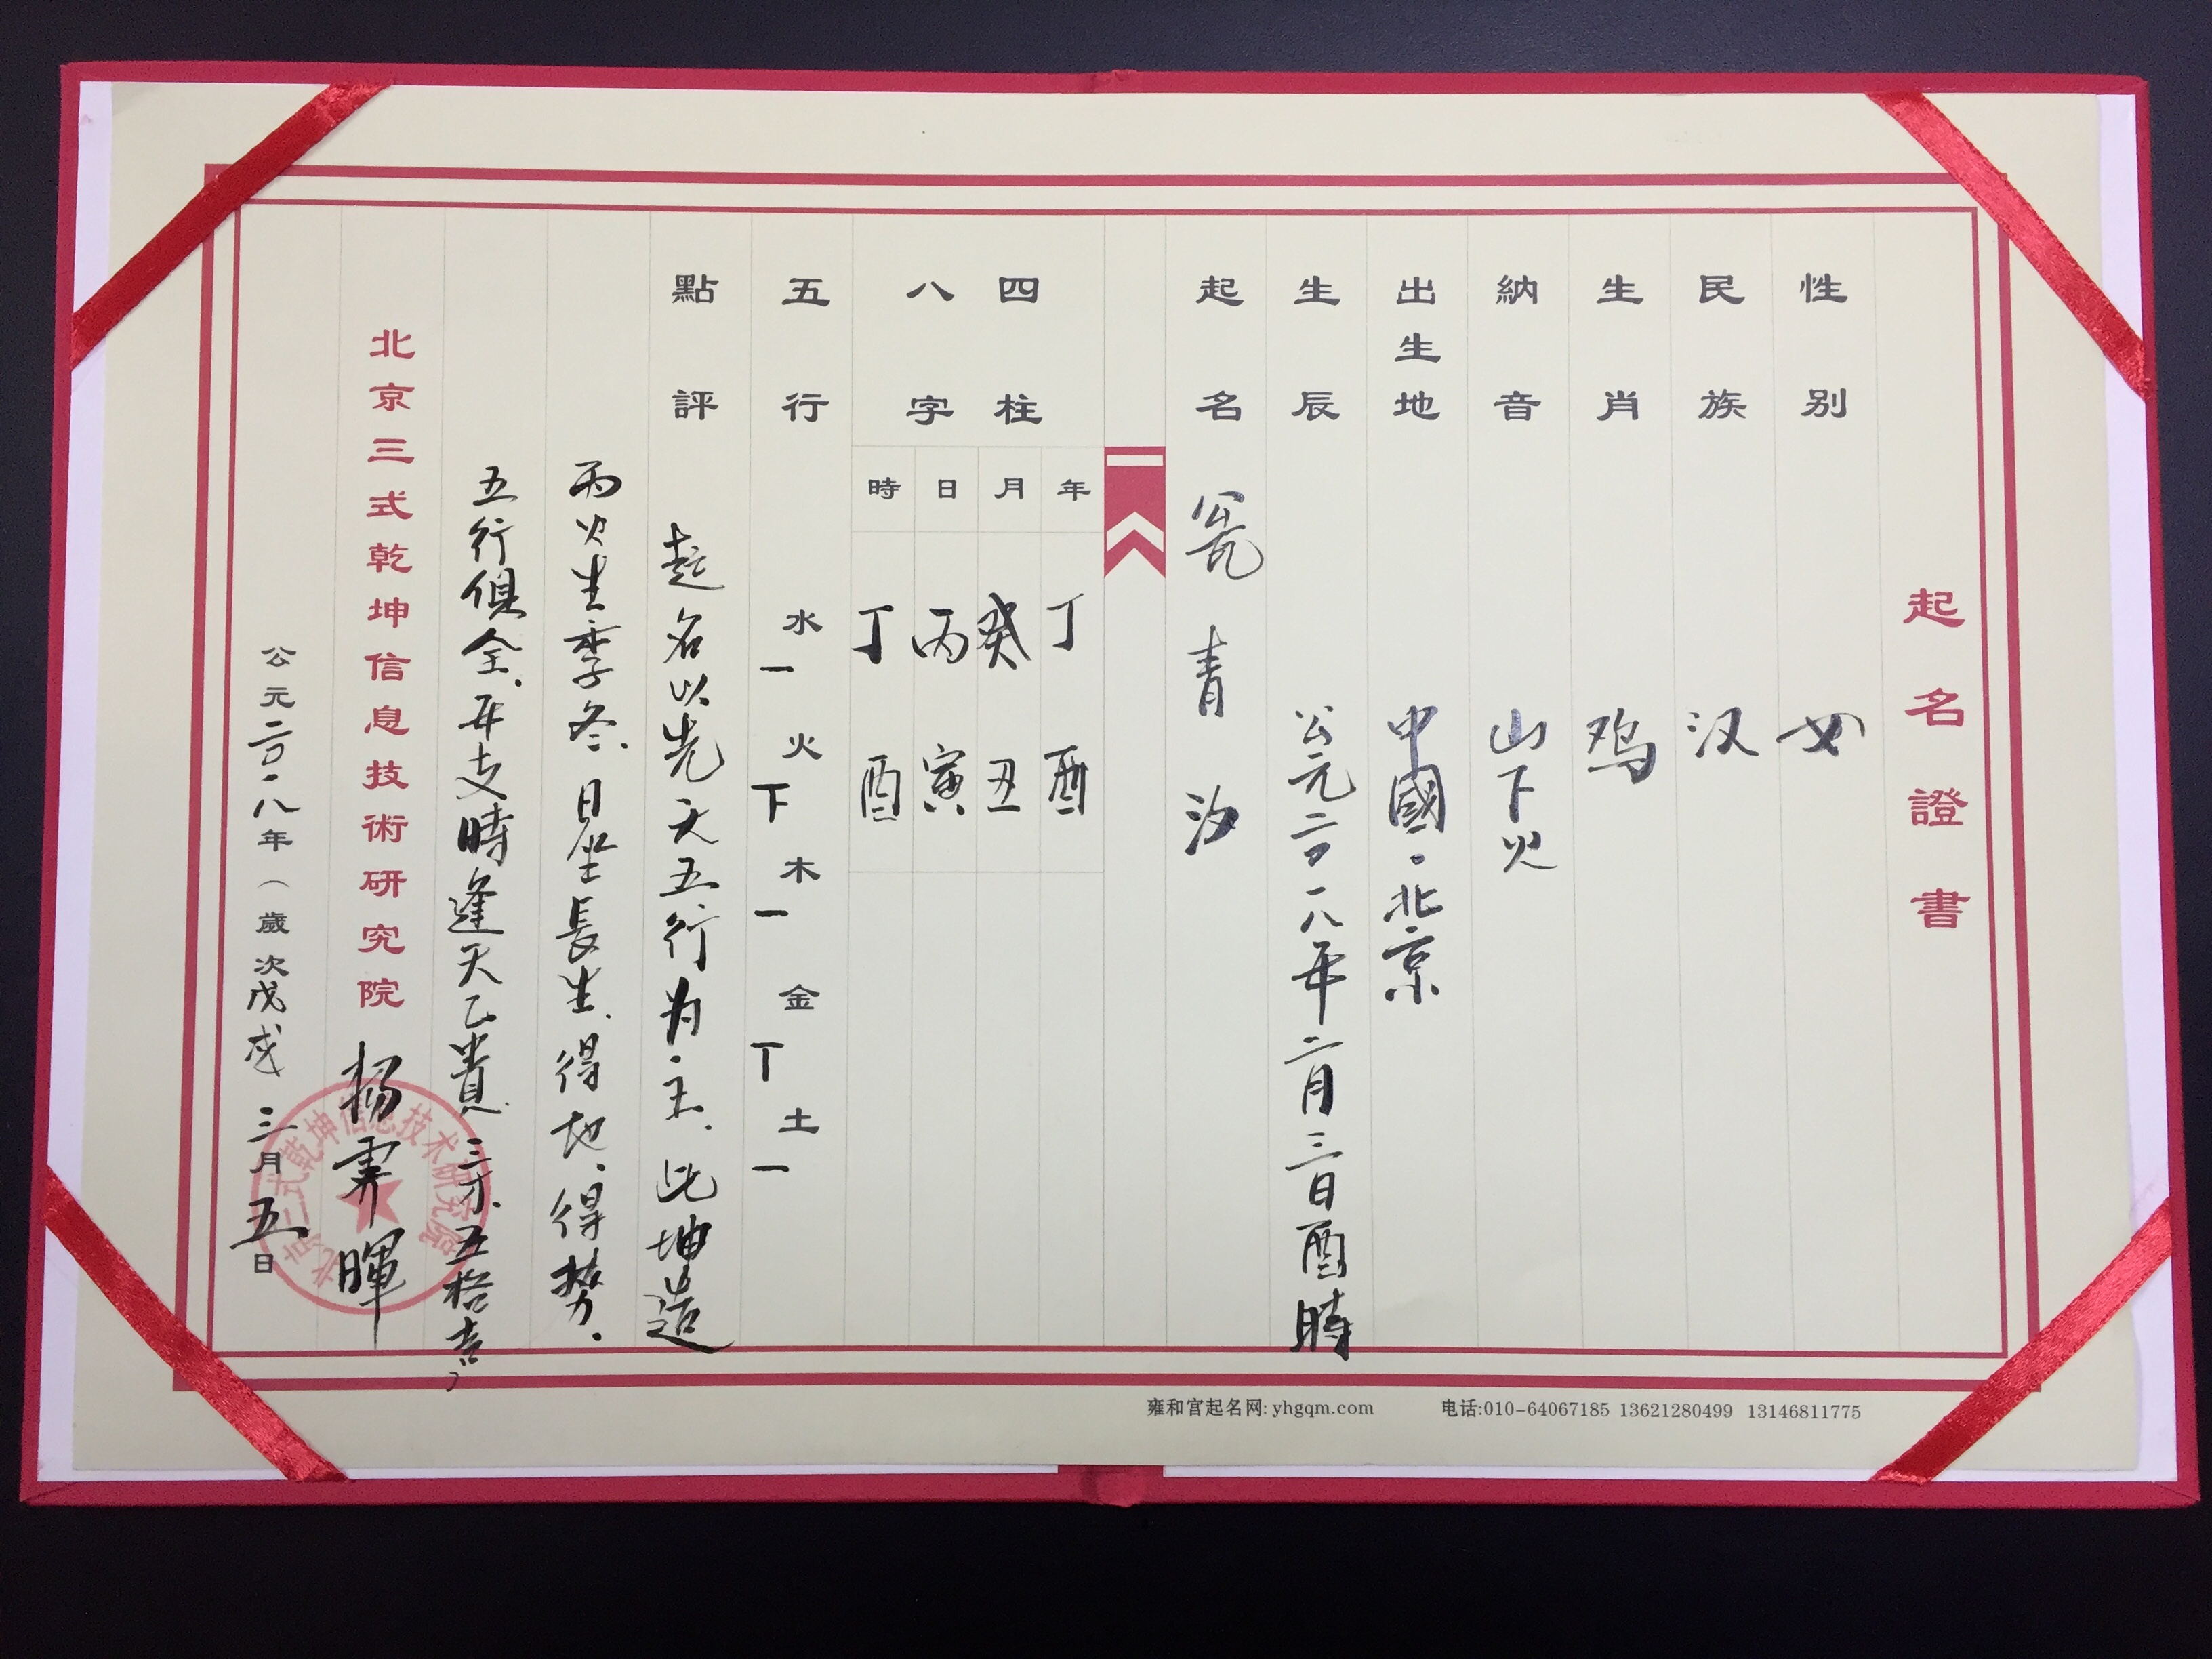 起名證書
性别 女
民族 汉
生肖 鸡
納音 山下火
出生地 中國·北京
生辰 公元二〇一八年二月三日酉時
起名 青汐
四柱
八字
年 丁酉
月 癸丑
日 丙寅
時 丁酉
五行 水一 火下 木一 金丅 土一
點評 起名以先天五行为主、此坤造
丙火生季冬、日坐長生、得地、得势.
五行俱全、年支時逢天乙貴、三才、五格吉
北京三式乾坤信息技術研究院 杨霁暉
公元二〇一八年（歲次戊戌 三月五日
北京三式乾坤信息技术研究院
雍和宫起名网: yhgqm.com 电话:010-64067185 13621280499 13146811775